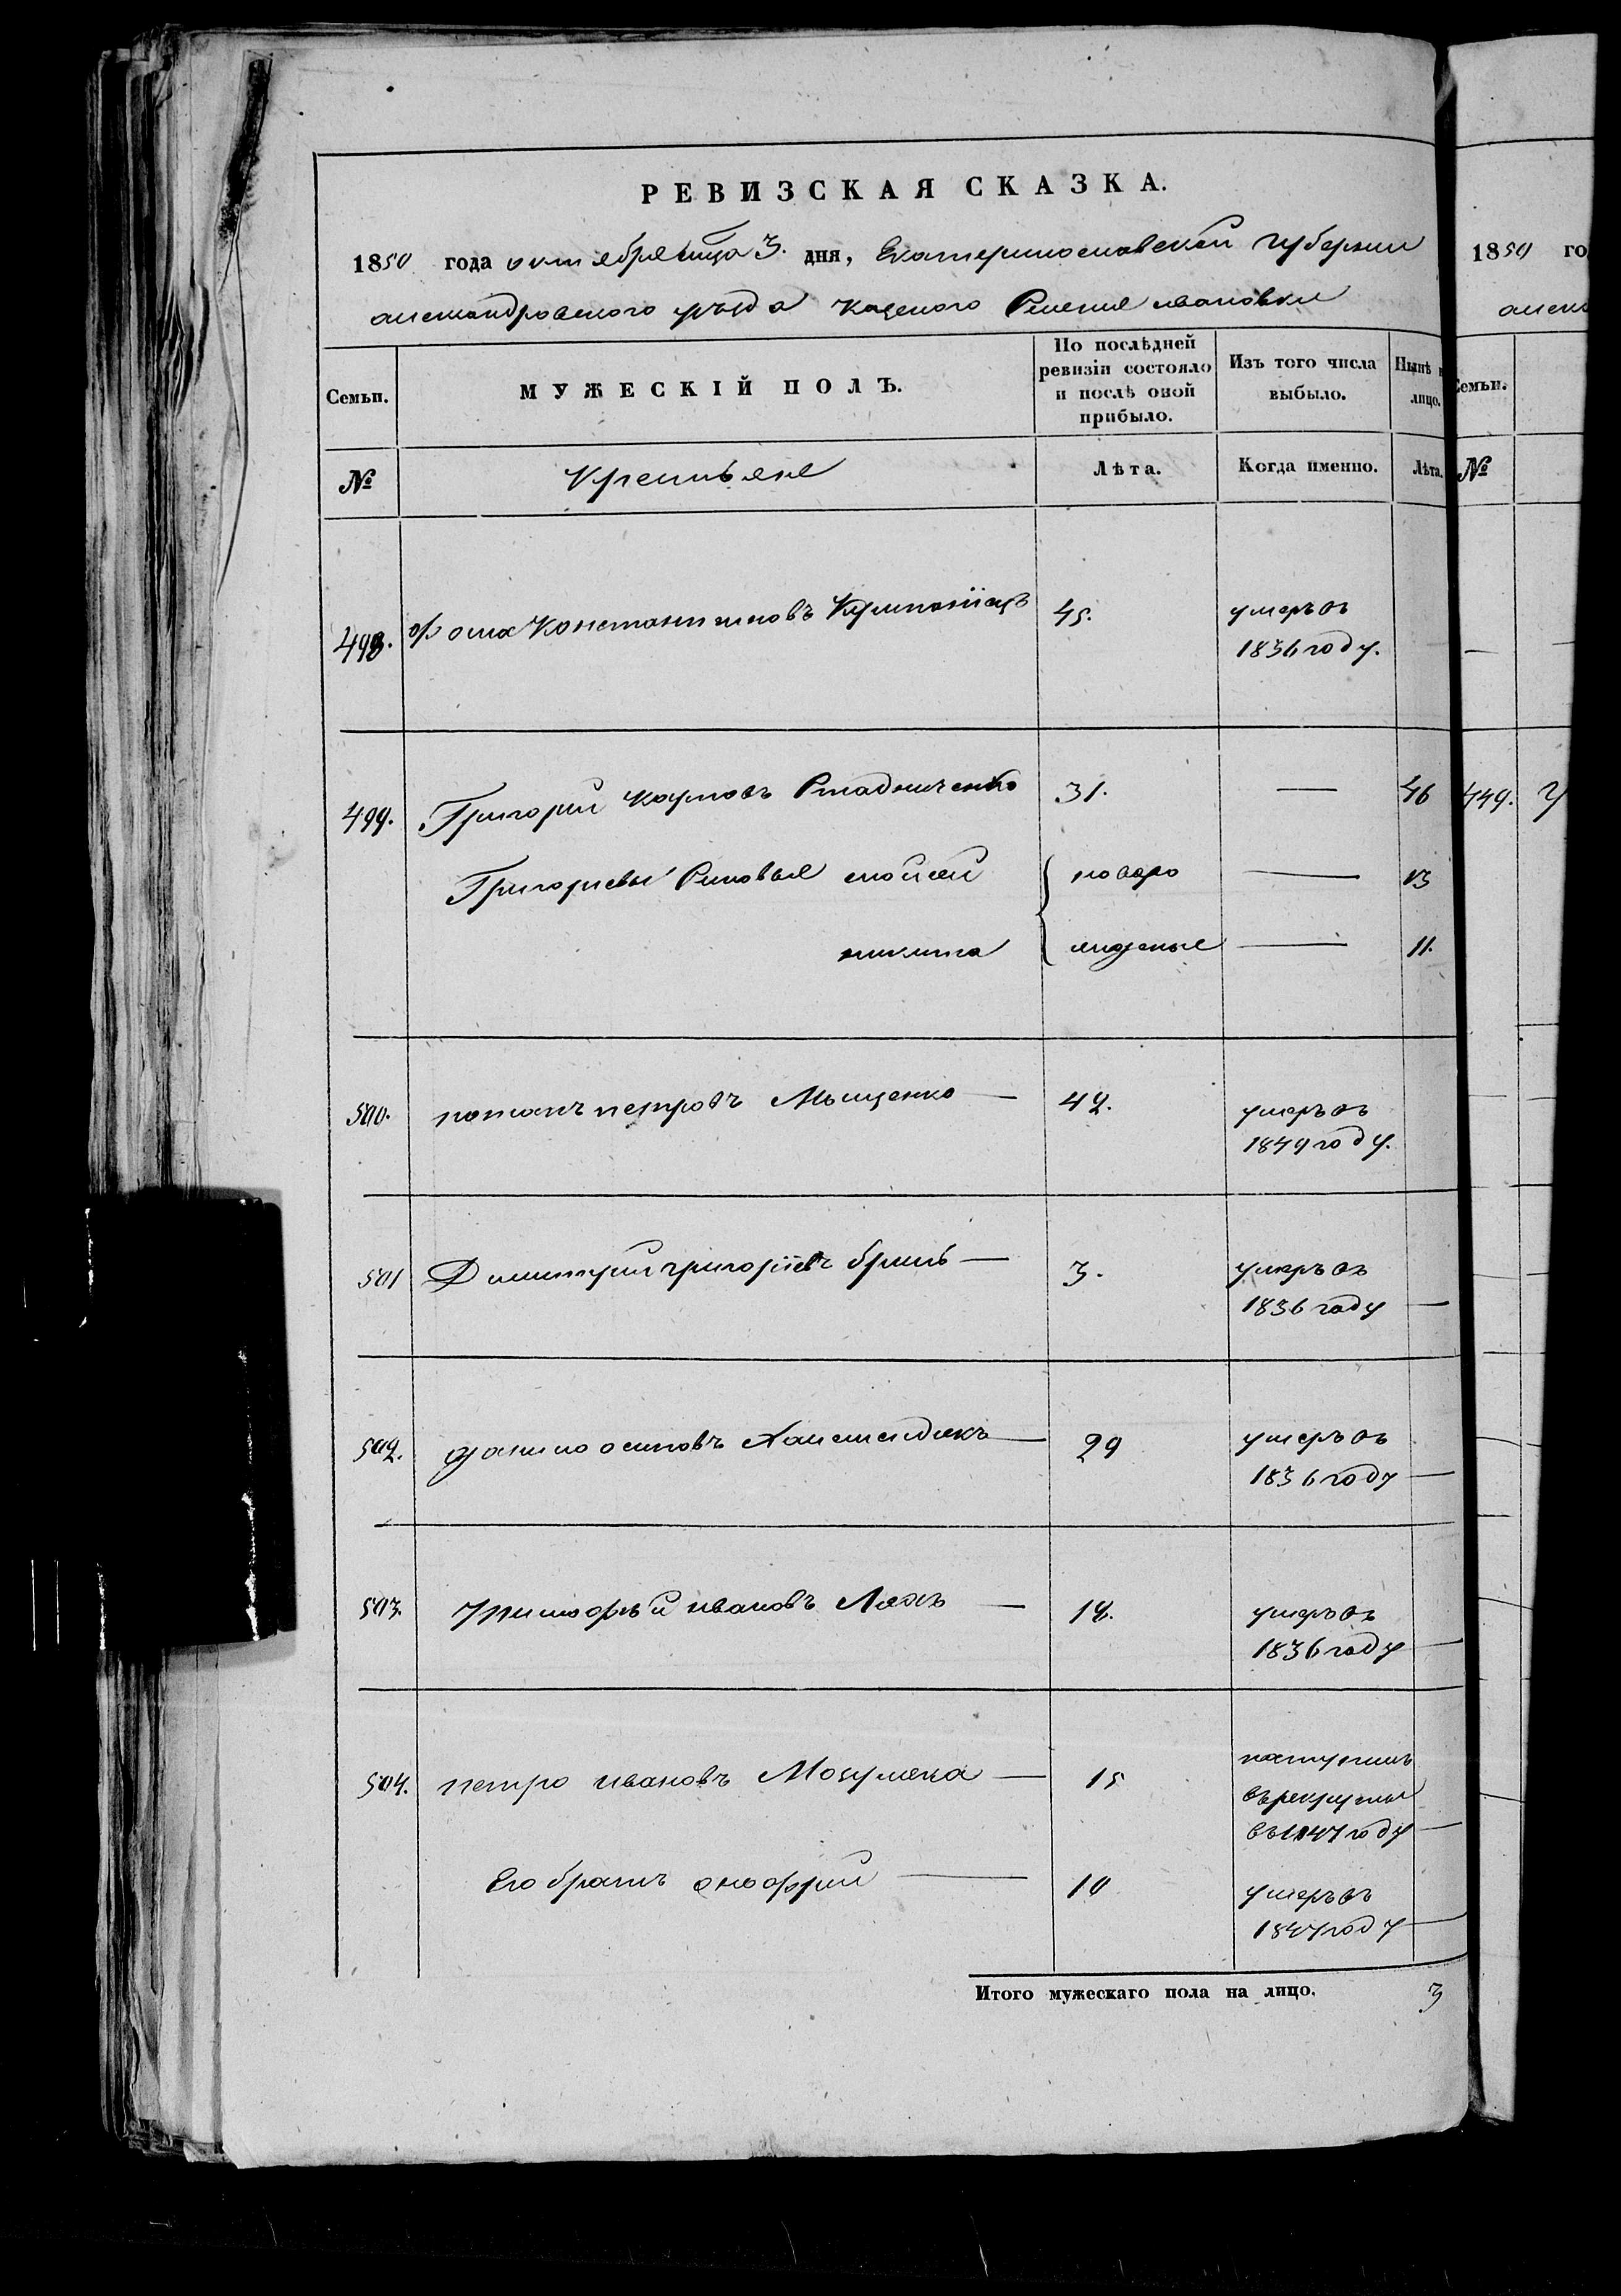 РЕВИЗСКАЯ СКАЗКА.
1850 года октября мца 3. дня, Екатеринославской губернии
александровского уезда казеного Селения ивановки
Семьи. МУЖЕСКІЙ ПОЛЪ. По послѣдней ревизіи состояло и послѣ оной прибыло. Изъ того числа выбыло. Нынѣ лицо.
№ Крестьяне Лѣта. Когда именно. Лѣта.
498. фома Константиновъ 45. умеръ въ
1836 году.
499. Григорий карповъ Стадниченко 31. — 46
Григориевы Сыновья моисей новоро — 13
никита жденые — 11.
500. потапъ петровъ Мищенко — 42. умеръ въ
1849 году.
501 Димитрий григоріевъ бриль — 3. умеръ въ
1836 году —
502. данило осиповъ — 29 умеръ въ
1836 году —
503. григорѣй ивановъ Ляхъ — 18. умеръ въ
1836 году —
504. петро ивановъ — 15 поступилъ
въ рекруты
въ 1847 году —
Его братъ онофрий — 10 умеръ въ
1847 году —
Итого мужескаго пола на лицо. 3
1850 го
алекс
Семьи.
№
449.